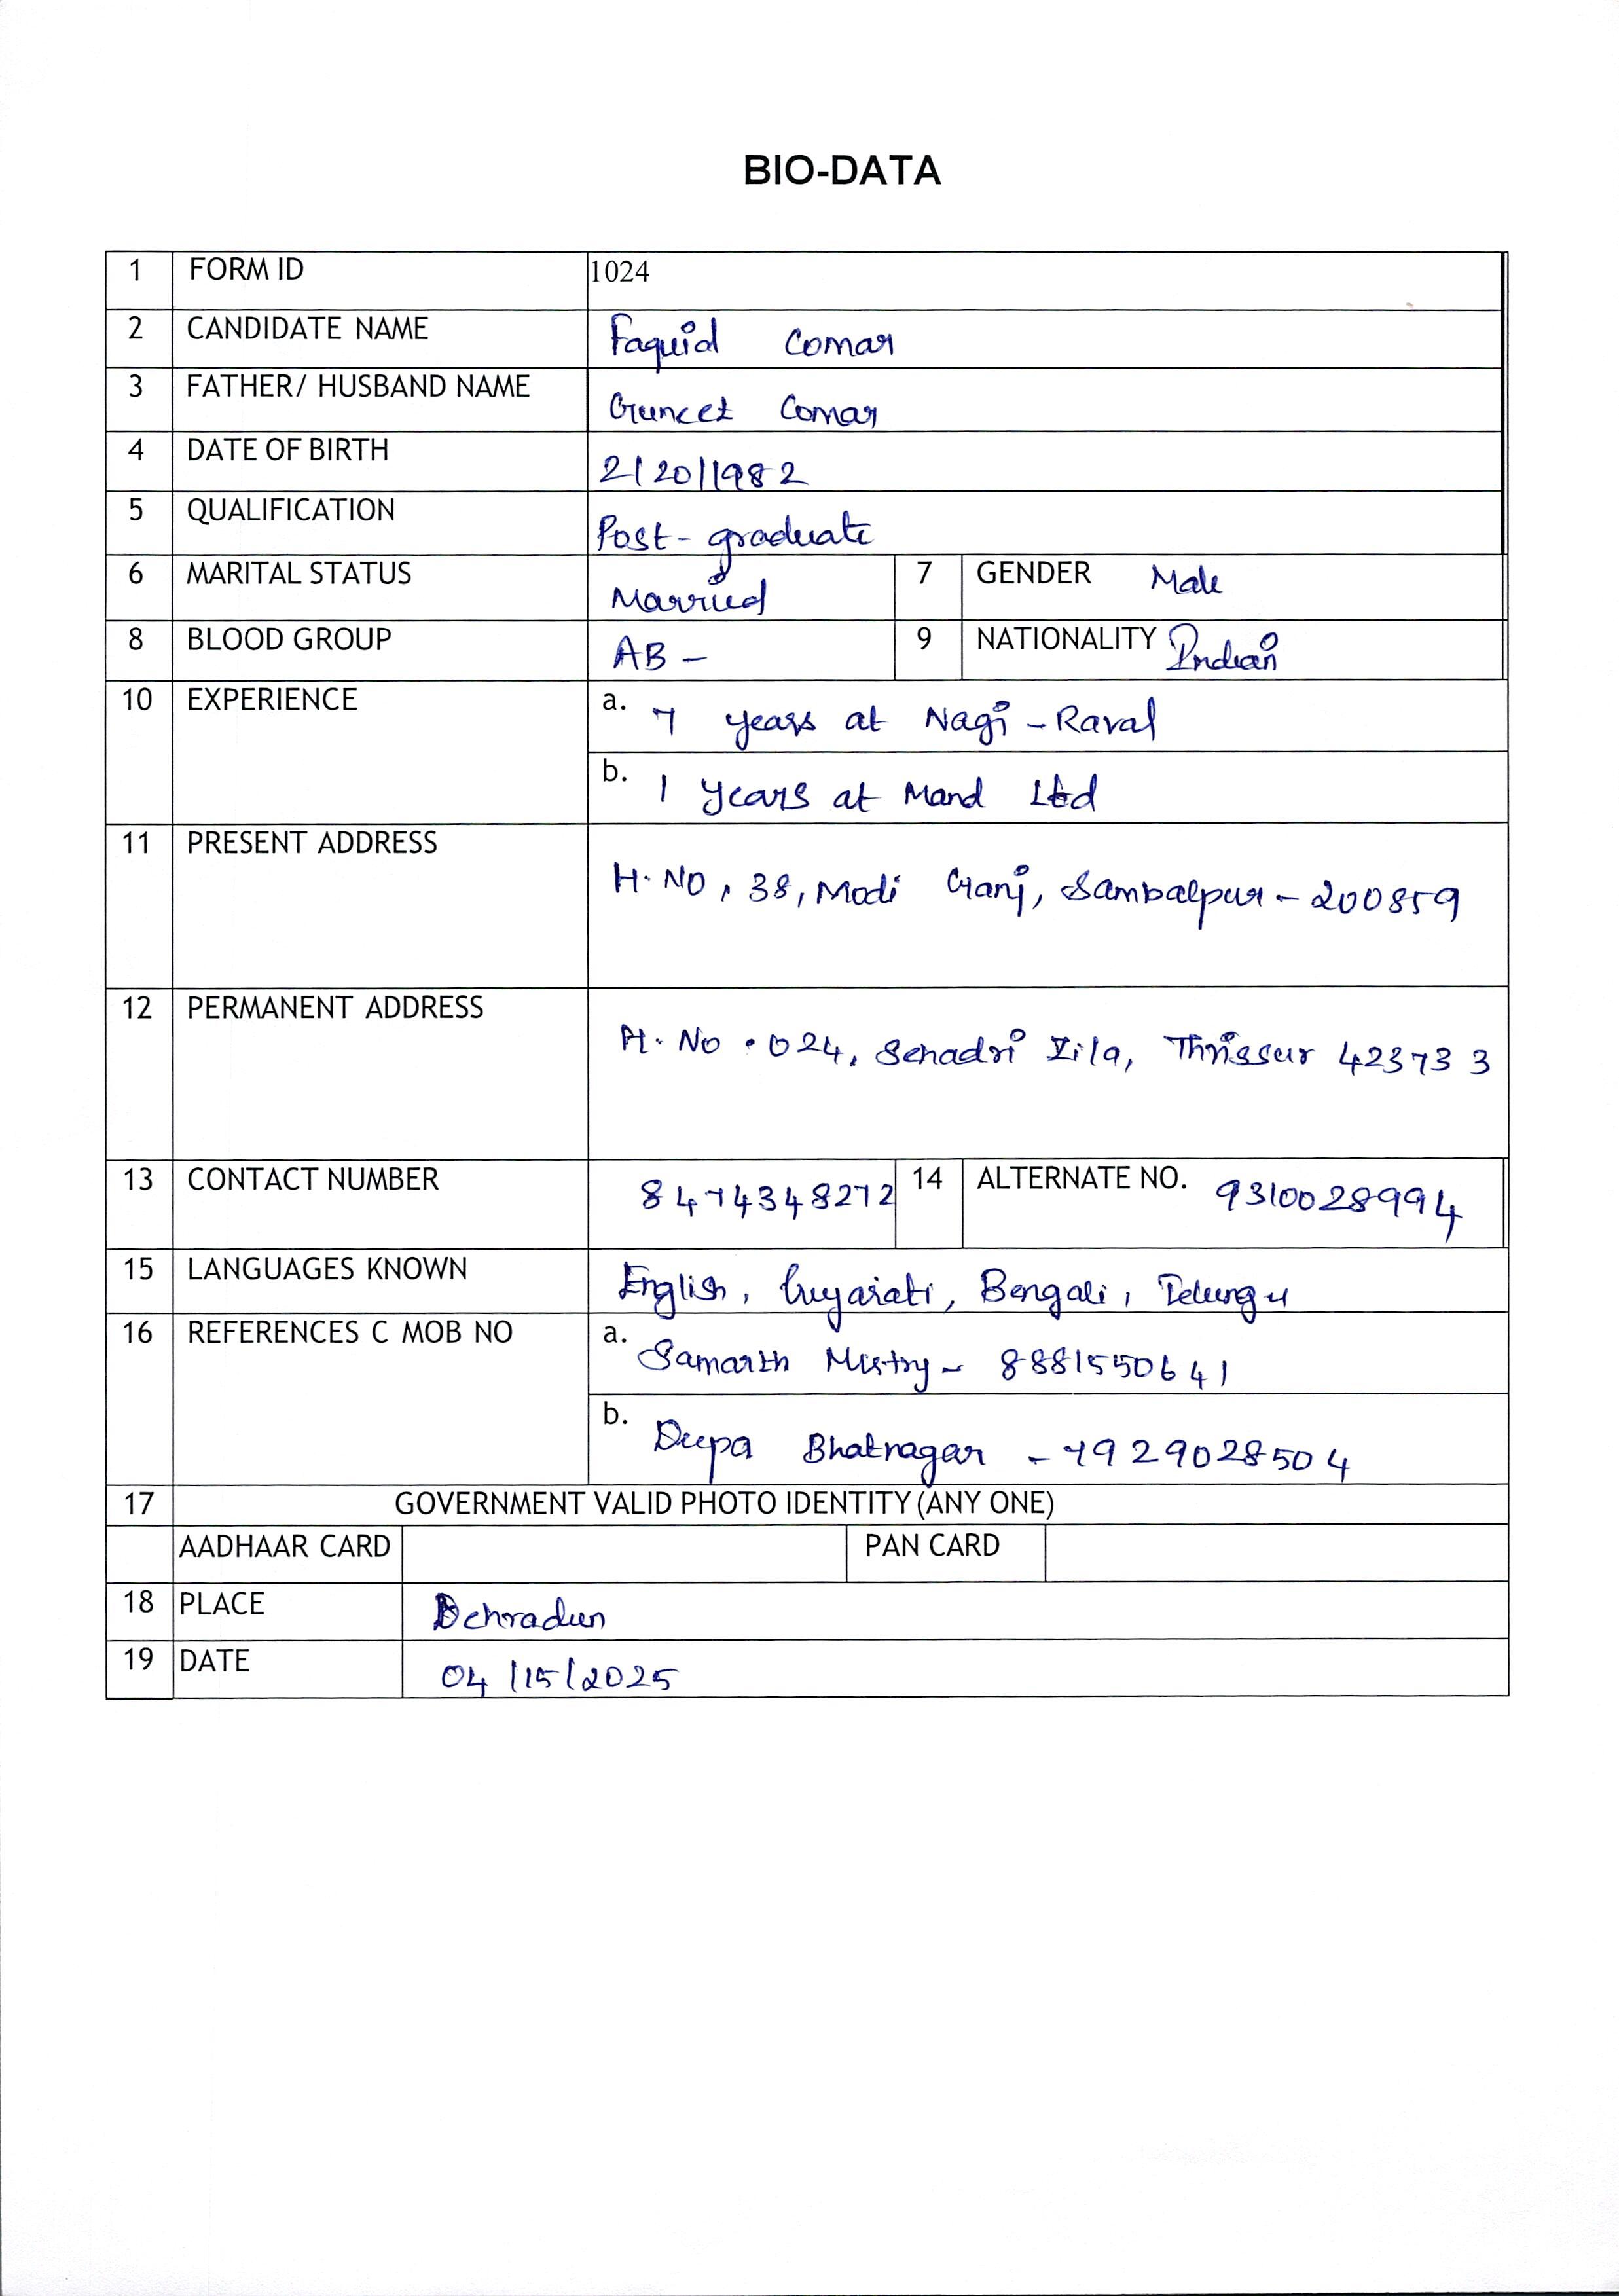 BIO-DATA
1 FORM ID 1024
2 CANDIDATE NAME Faquid Comar
3 FATHER/ HUSBAND NAME Guneet Comar
4 DATE OF BIRTH 2/20/1982
5 QUALIFICATION Post-graduate
6 MARITAL STATUS Married 7 GENDER Male
8 BLOOD GROUP AB - 9 NATIONALITY Indian
10 EXPERIENCE a. 7 years at Nagi - Raval
b. 1 years at Mand Ltd
11 PRESENT ADDRESS H. NO, 38, Modi Ganj, Sambalpur - 200859
12 PERMANENT ADDRESS H. No . 024, Zila, Thrissur 423733
13 CONTACT NUMBER 8474348272 14 ALTERNATE NO. 9310028994
15 LANGUAGES KNOWN English, Gujarati, Bengali, Telungu
16 REFERENCES C MOB NO a. Samarth Mistry - 8881550641
b. Deepa Bhatnagar - 7929028504
17 GOVERNMENT VALID PHOTO IDENTITY (ANY ONE)
AADHAAR CARD PAN CARD
18 PLACE Dehradun
19 DATE 04/15/2025